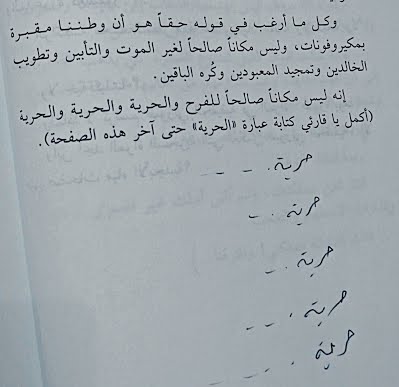 وكل ما أرغب في قوله حقاً هو أن وطننا مقبرة
بمكيروفونات، وليس مكاناً صالحاً لغير الموت والتأبين وتطويب
الخالدين وتمجيد المعبودين وكُره الباقين.
إنه ليس مكاناً صالحاً للفرح والحرية والحرية والحرية
(أكمل يا قارئي كتابة عبارة «الحرية» حتى آخر هذه الصفحة).
حرية. - - -
حرية. -
حرية. -
حرية. - -
حرية. - - -